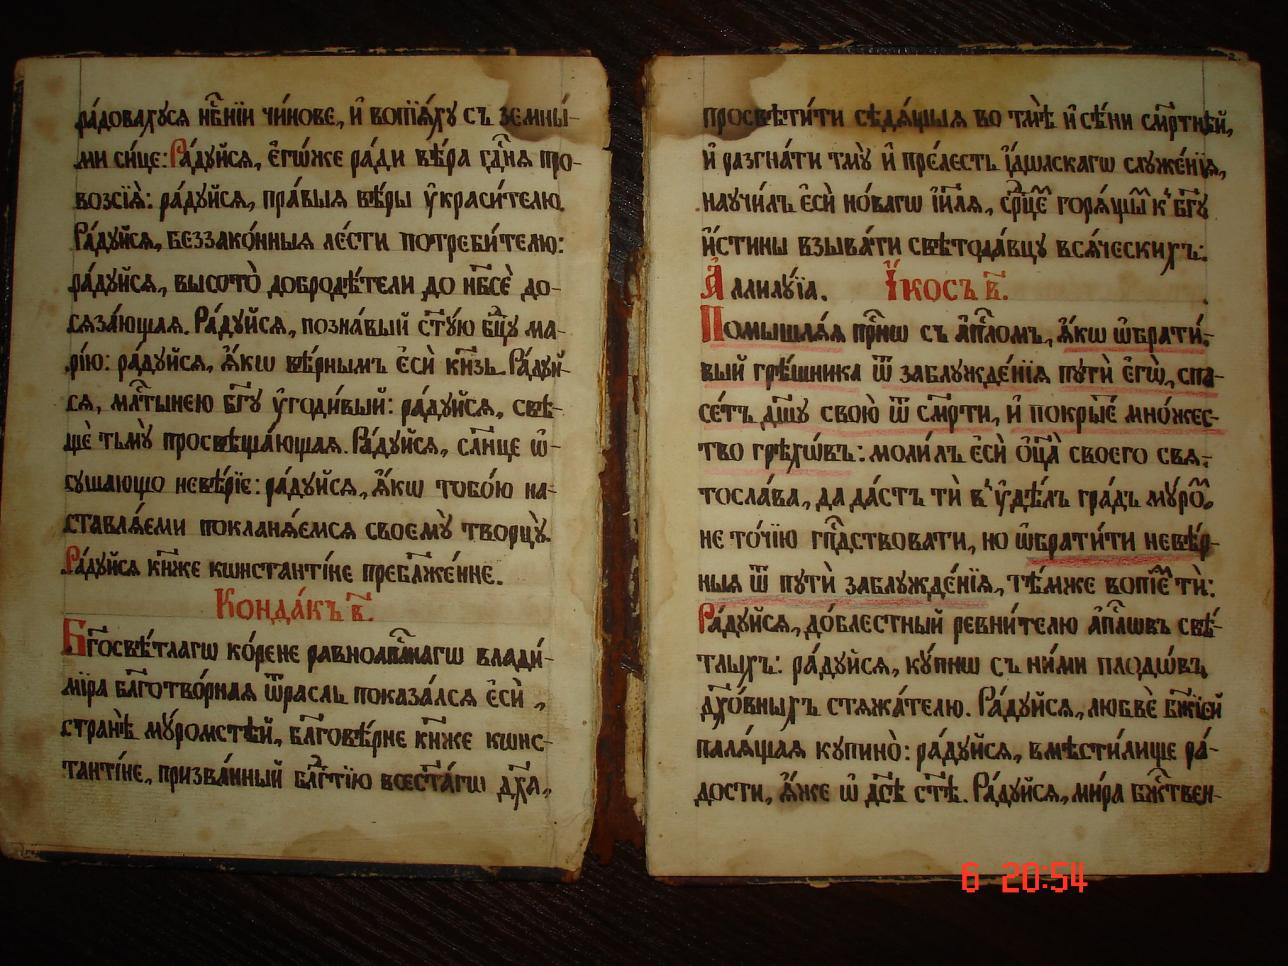 ра́довахуся нб҃нїи чи́нове, и҆ вопїѧ́ху съ земны́-
ми си́це: Ра́дуйсѧ, є҆гѡ́же ра́ди вѣ́ра гдⷭ҇нѧ про-
возсїѧ̀: ра́дуйсѧ, пра́выѧ вѣ́ры ѹ҆краси́телю.
Ра́дуйсѧ, беззако́нныѧ ле́сти потреби́телю:
ра́дуйсѧ, высото̀ добродѣ́тели до нб҃сѐ до-
сѧза́ющаѧ. Ра́дуйсѧ, позна́вый ст҃у́ю бцⷣу ма-
рі́ю: ра́дуйсѧ, ꙗ҆́кѡ вѣ́рнымъ є҆сѝ кн҃зь. Ра́дуй-
сѧ, млⷭ҇тынею бг҃у ѹ҆годи́вый: ра́дуйсѧ, свѣ-
щѐ тьмꙋ̀ просвѣща́ющаѧ. Ра́дуйсѧ, сл҃нце ѡ҆-
сушающо невѣ́рїе: ра́дуйсѧ, ꙗ҆́кѡ тобо́ю на-
ставлѧ́еми покланѧ́емсѧ своемꙋ̀ творцꙋ̀.
Ра́дуйсѧ кн҃же кѡнстанті́не преблж҃е́нне.
Конда́къ в҃.
Бг҃освѣ́тлагѡ ко́рене равноапⷭ҇лнагѡ влади́-
мїра бл҃готво́рнаѧ ѿрасль показа́лсѧ є҆сѝ,
странѣ̀ мꙋ́ромстѣй, бл҃говѣ́рне кн҃же кѡнс-
танті́не, призва́нный бл҃года́тїю всест҃а́гѡ дх҃а,
просвѣти́ти сѣдѧ́щыѧ во тмѣ̀ и҆ сѣ́ни сме́ртнѣй,
и҆ разгна́ти тмꙋ̀ и҆ пре́лесть і҆́дѡлскагѡ служе́нїѧ,
научи́лъ є҆сѝ но́вагѡ і҆и҃лѧ, срⷣцемъ горѧ́щимъ к̾ бг҃у
и҆́стины взыва́ти свѣтода́вцу всѧ́ческихъ:
А҆ллилу́їа. І҆́косъ в҃.
Помышлѧ́ѧ пр҇нѡ съ а҆пⷭ҇ломъ, ꙗ҆́кѡ ѡ҆брати́-
вый грѣ́шника ѿ заблужде́нїѧ путѝ є҆гѡ̀, спа-
се́тъ дш҃у свою̀ ѿ сме́рти, и҆ покры́е мно́жес-
тво грѣхѡ́въ: моли́лъ є҆сѝ ѻ҆ц҃а̀ своего свѧ-
тосла́ва, да да́стъ тѝ в̾ ѹ҆дѣ́лъ гра́дъ мꙋ́ромъ,
не то́чїю гпⷭ҇дствовати, но ѡ҆брати́ти невѣ́р-
ныѧ ѿ путѝ заблужде́нїѧ, тѣ́мже вопїе́мъ тѝ:
Ра́дуйсѧ, до́блестный ревни́телю а҆пⷭ҇лѡвъ свѣ́-
тлыхъ: ра́дуйсѧ, ку́пнѡ съ ни́ми плодѡ́въ
дх҃о́вныхъ стѧжа́телю. Ра́дуйсѧ, любвѐ бж҃їей
палѧ́щаѧ купино̀: ра́дуйсѧ, вмѣсти́лище ра́-
дости, ꙗ҆́же ѡ҆ дс҃ѣ ст҃ѣ. Ра́дуйсѧ, ми́ра бжⷭ҇твен-
6 20:54